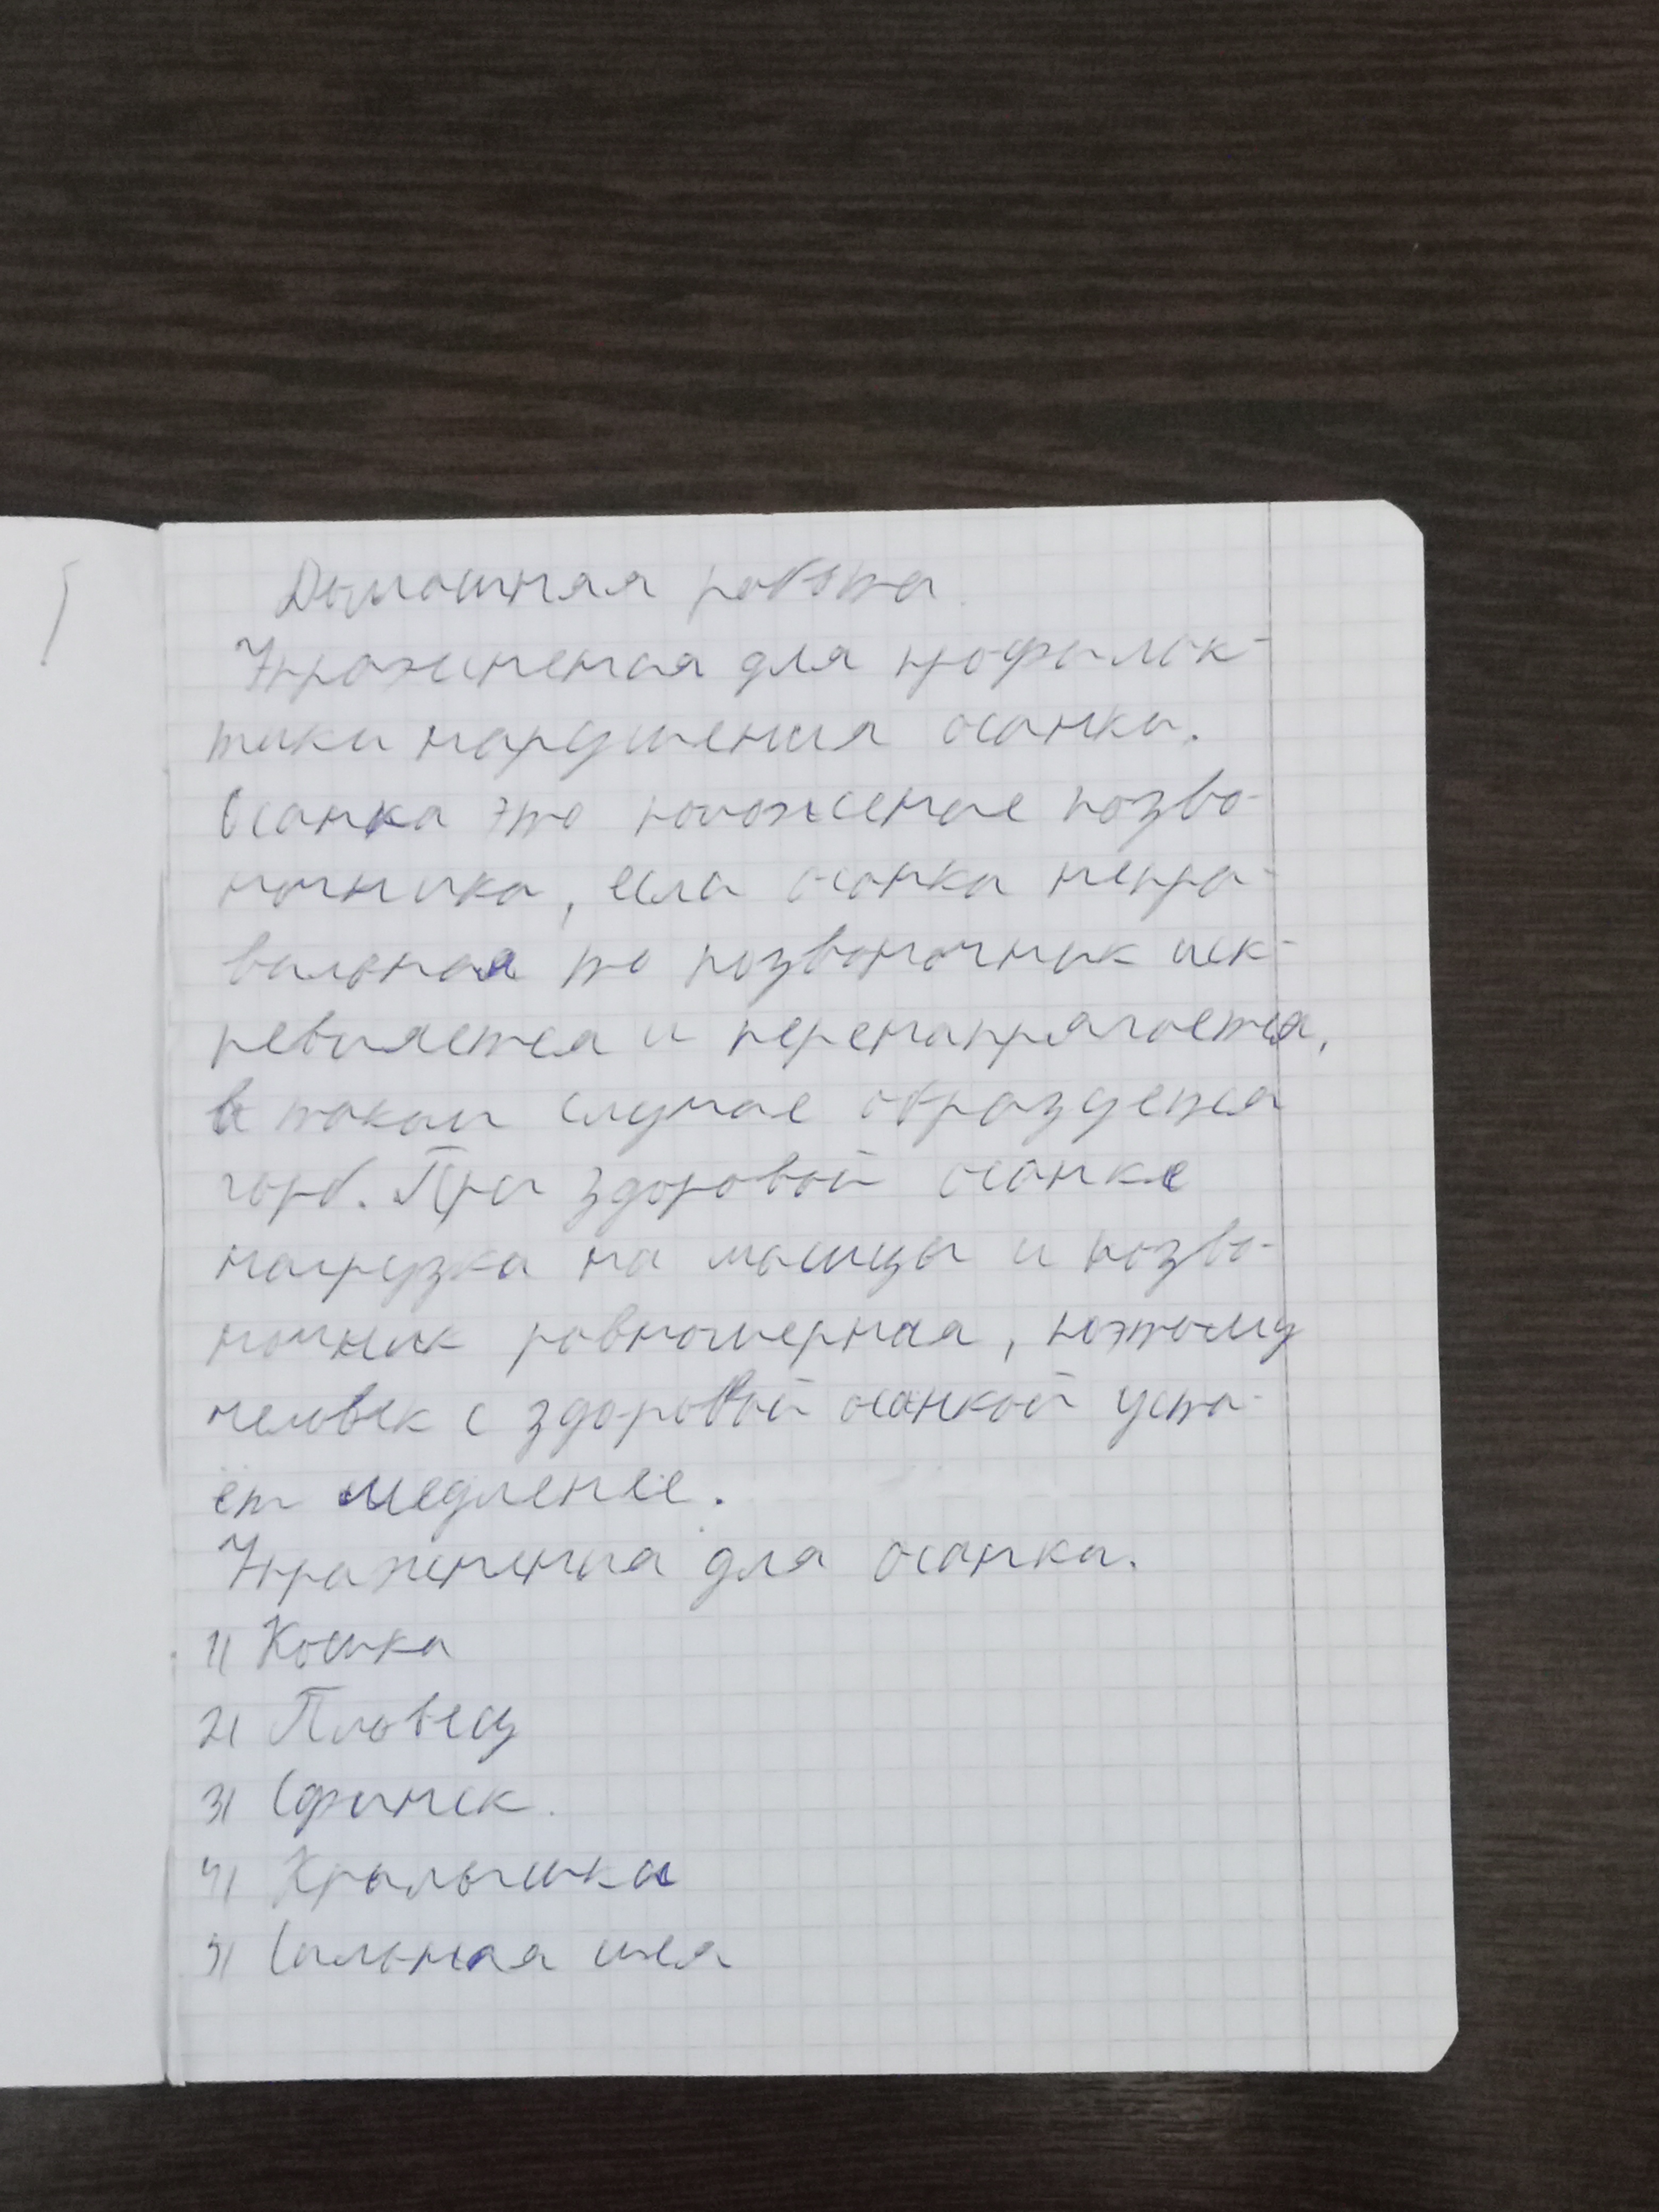 Домашняя работа
Упражнения для профилак-
тики нарушения осанки.
Осанка это положение позво-
ночника, если осанка непра-
вильная то позвоночник иск-
ревляется и перенапрягается,
в таком случае образуется
горб. При здоровой осанке
нагрузка на мышцы и позво-
ночник равномерная, поэтому
человек с здоровой осанкой уста-
ёт медленее.
Упражнения для осанки.
1) Кошка
2) Пловец
3) Сфинск.
4) Крылышки
5) Сильная шея